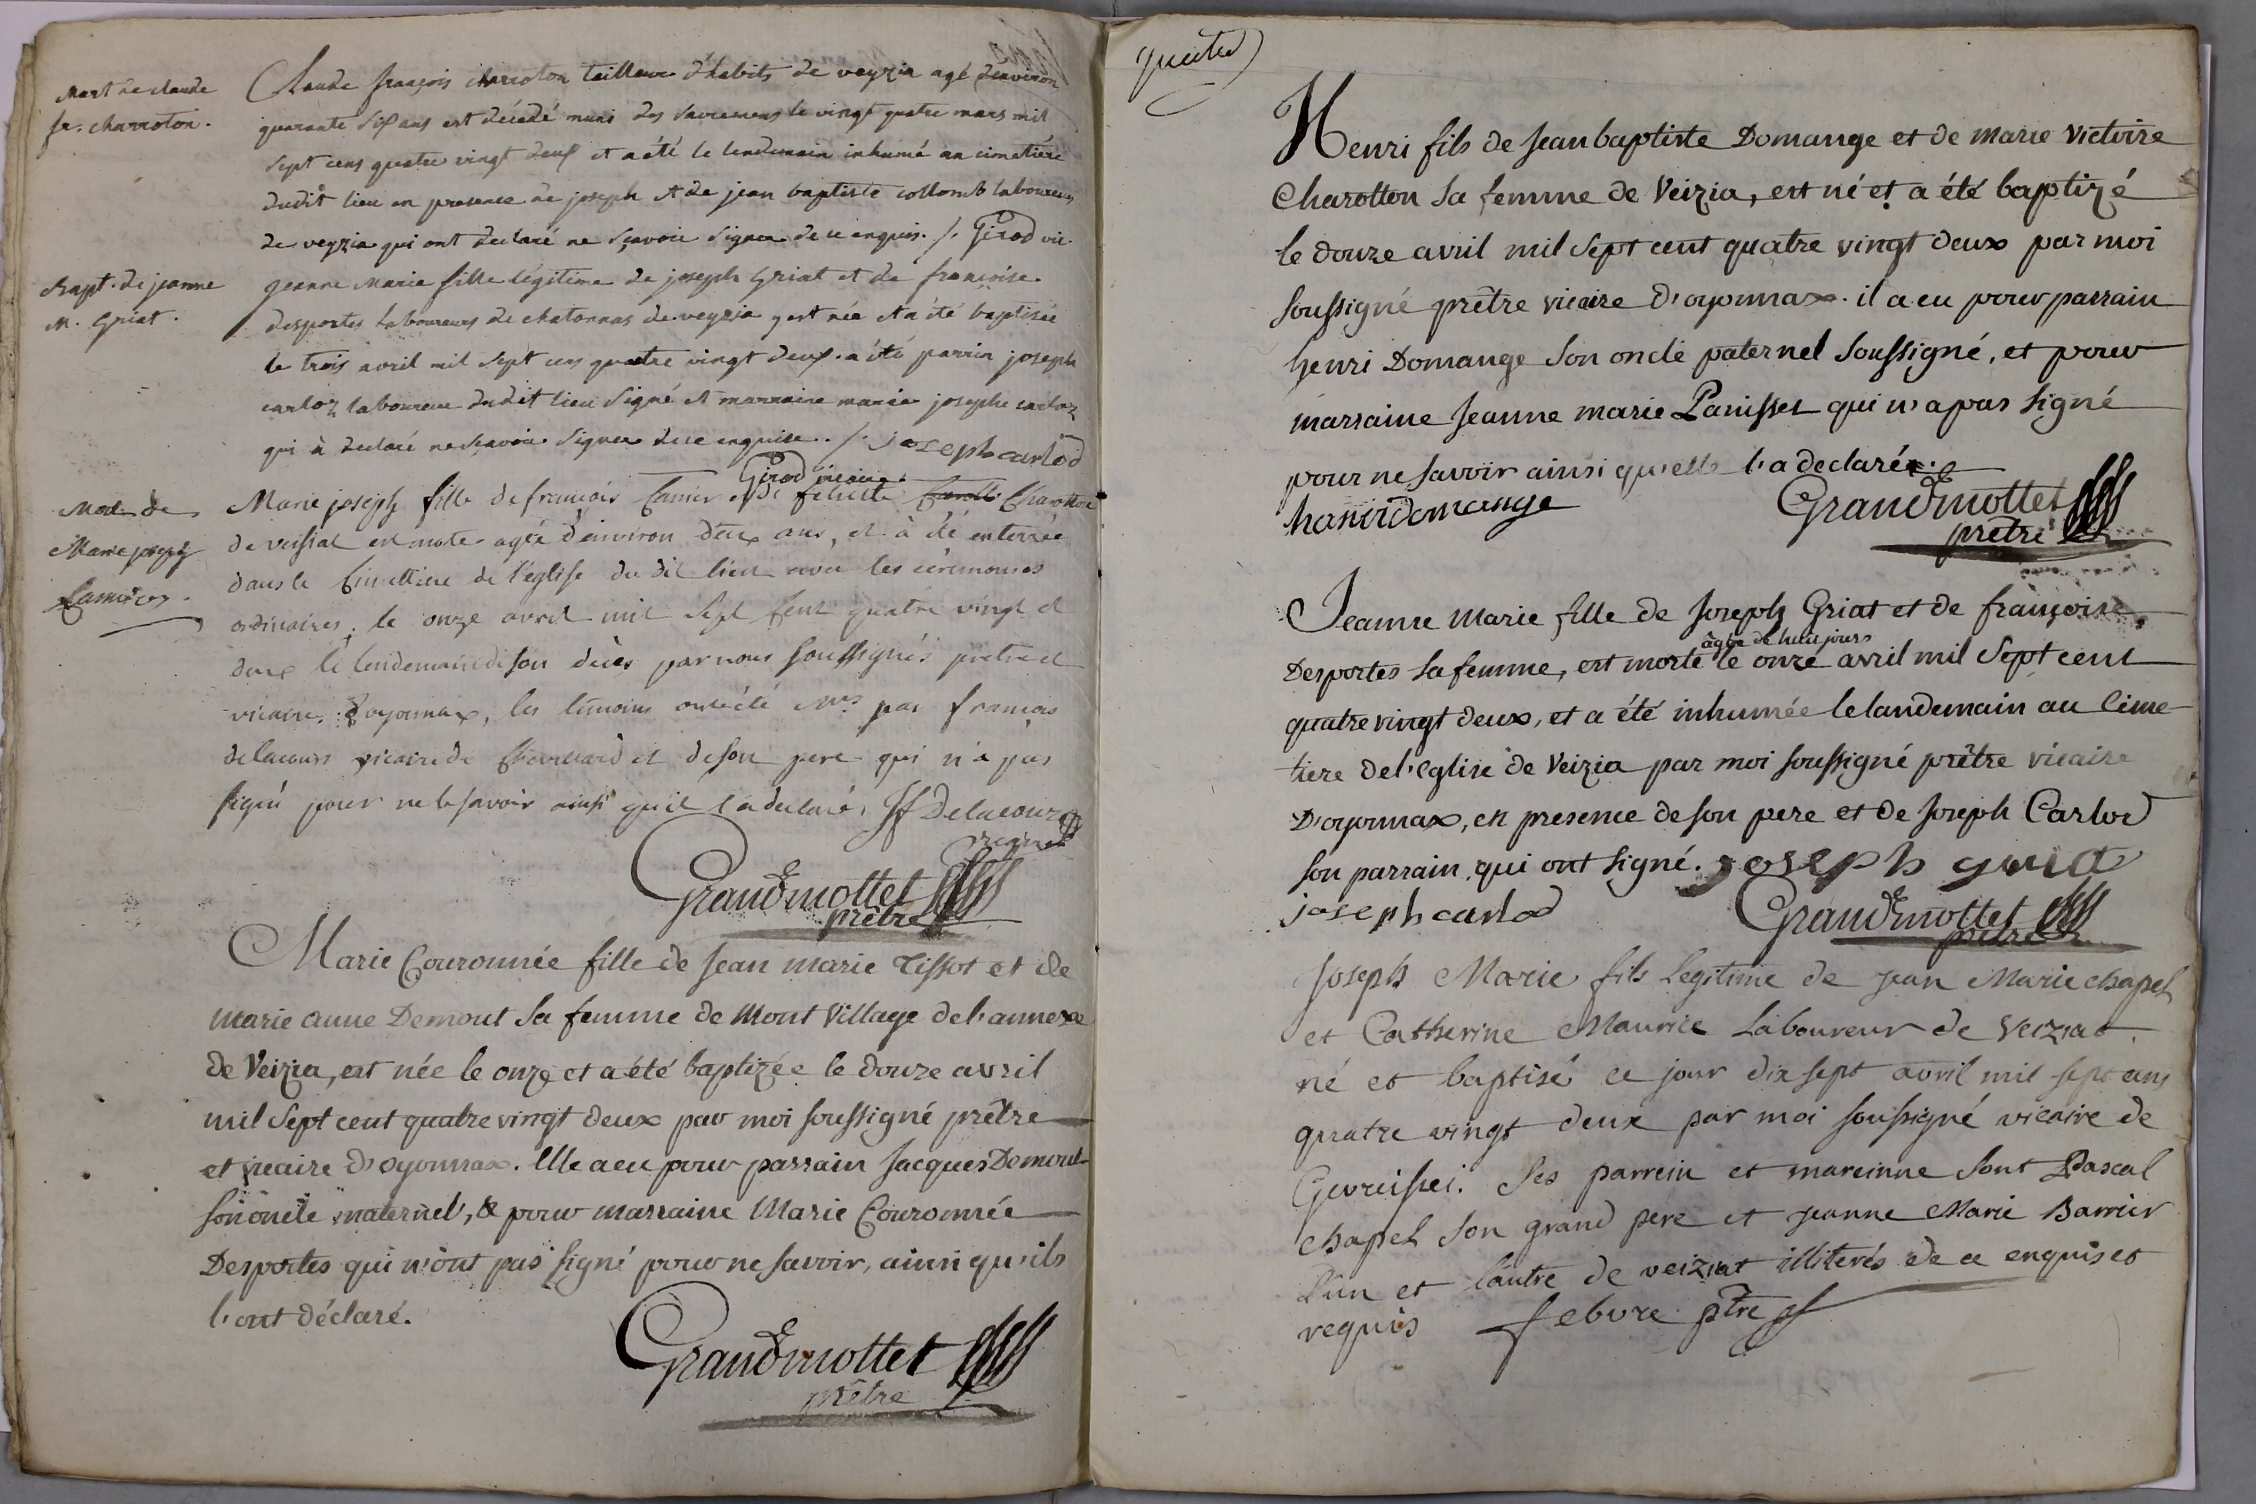 Mort de claude
fr. charroton.
Claude françois charroton tailleur d'habits de veyzia agé d'environ
quarante six ans est décédé muni des sacremens le vingt quatre mars mil
sept cens quatre vingt deux et a été le lendemain inhumé au cimetiére
dudit lieu en presence de joseph et de jean baptiste collomb laboureurs
de veyzia qui ont declaré ne sçavoir signer de ce enquis. /. Girod vic.
Bapt. de jeanne
M. Griat.
jeanne Marie fille légitime de joseph Griat et de françoise
desportes laboureurs de chatonnas de veyzia y est née et a été baptisée
le trois avril mil sept cens quatre vingt deux. a été parrin joseph
carloz laboureur dudit lieu signé et marraine marie josephe carloz
qui à declaré ne sçavoir signer de ce enquise. /. joseph carlod
Girod vicaire
Mort de
Marie joseph
Lamier
Marie joseph fille de françois Lamier et de felicite Charotton
de veissiat est morte agée d'environ deux ans, et à été enterrée
dans le Cimettiere de l'église du dit lieu avec les cérémonies
ordinaires, le onze avril mil sept cent quatre vingt et
deux le lendemain de son décès par nous soussignés pretre et
vicaire d'oyonnax, les témoins ont été mrs par françois
delacour vicaire de et de son pere qui n'a pas
signé pour ne le savoir ainsi qu'il l'a declaré, Delacour
Grandmottet
prêtre
Marie Couronnée fille de Jean marie Tissot et de
marie anne Demont sa femme de Mont Village de l'annexe
de Veizia, est née le onze et a été baptizée le douze avril
mil sept cent quatre vingt deux par moi soussigné prêtre
et vicaire d'oyonnax. Elle a eu pour parrain Jacques Demont
son oncle maternel, & pour marraine Marie Couronnée
Desportes qui n'ont pas signé pour ne savoir, ainsi qu'ils
l'ont déclaré.
Grandmottet
prêtre
Henri fils de Jean baptiste Domange et de marie victoire
Charotton sa femme de Veizia, est né et a été baptizé
le douze avril mil sept cent quatre vingt deux par moi
soussigné prêtre vicaire d'oyonnax. il a eu pour parrain
henri Domange son oncle paternel soussigné, et pour
marraine Jeanne marie Panisset qui n'a pas signé
pour ne savoir ainsi qu'elle l'a declaré.
hanridomange
Grandmottet
prêtre
Jeanne Marie fille de Joseph Griat et de françoise
âgée de huit jours
Desportes sa femme, est morte le onze avril mil sept cent
quatre vingt deux, et a été inhumée le landemain au Cime-
tiere de l'eglise de Veizia par moi soussigné prêtre vicaire
D'oyonnax, en presence de son pere et de Joseph Carlod
son parrain, qui ont signé. joseph griat
joseph carlod
Grandmottet
prêtre
Joseph Marie fils legitime de jean Marie chapel
et Catherine Maurice Laboureur de Veiziat
né et baptisé ce jour dix sept avril mil sept cens
quatre vingt deux par moi soussigné vicaire de
Gevreissei. Ses parrein et mareinne sont Pascal
chapel son grand pere et jeanne Marie Barrier
L'un et l'autre de veiziat illiterés de ce enquis et
requis febvre ptre